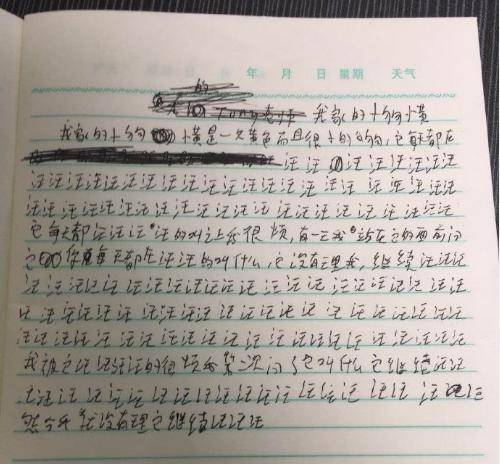 年 月 日 星期 天气
的
我家的小狗小黄
我家的小狗小黄是一只黄色而且很小的狗狗,它每天都在
汪汪汪汪汪汪汪汪
汪汪汪汪汪汪汪汪汪汪汪汪汪汪汪汪汪汪汪汪
汪汪汪汪汪汪汪汪汪汪汪汪汪汪汪汪汪汪汪汪
它每天都汪汪汪汪的叫让我很烦,有一天我站在它的面前问
它你每天都在汪汪的叫什么,它没有理我,继续汪汪汪
汪汪汪汪汪汪汪汪汪汪汪汪汪汪汪汪汪汪汪汪
汪汪汪汪汪汪汪汪汪汪汪汪汪汪汪汪汪汪汪汪
汪汪汪汪汪汪汪汪汪汪汪汪汪汪汪汪汪汪汪汪汪
我被它汪汪汪汪的很烦我第二次问了它叫什么它继续汪汪
汪汪汪汪汪汪汪汪汪汪汪汪汪汪汪汪汪汪汪
我没有理它继续汪汪汪